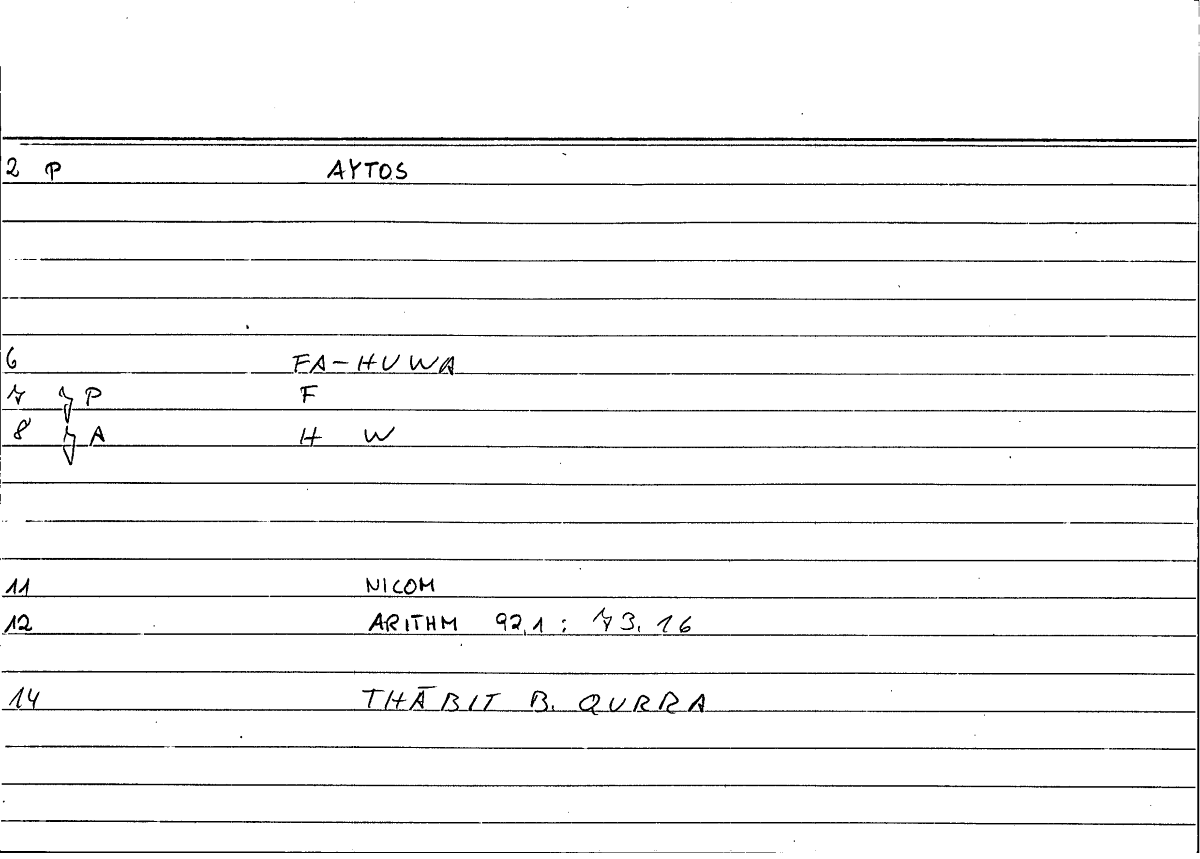 2 P AYTOS
6 FA-HUWA
7 P F
8 A H W
11 NICOM
12 ARITHM 92,1 : 73.16
14 THĀBIT B. QURRA